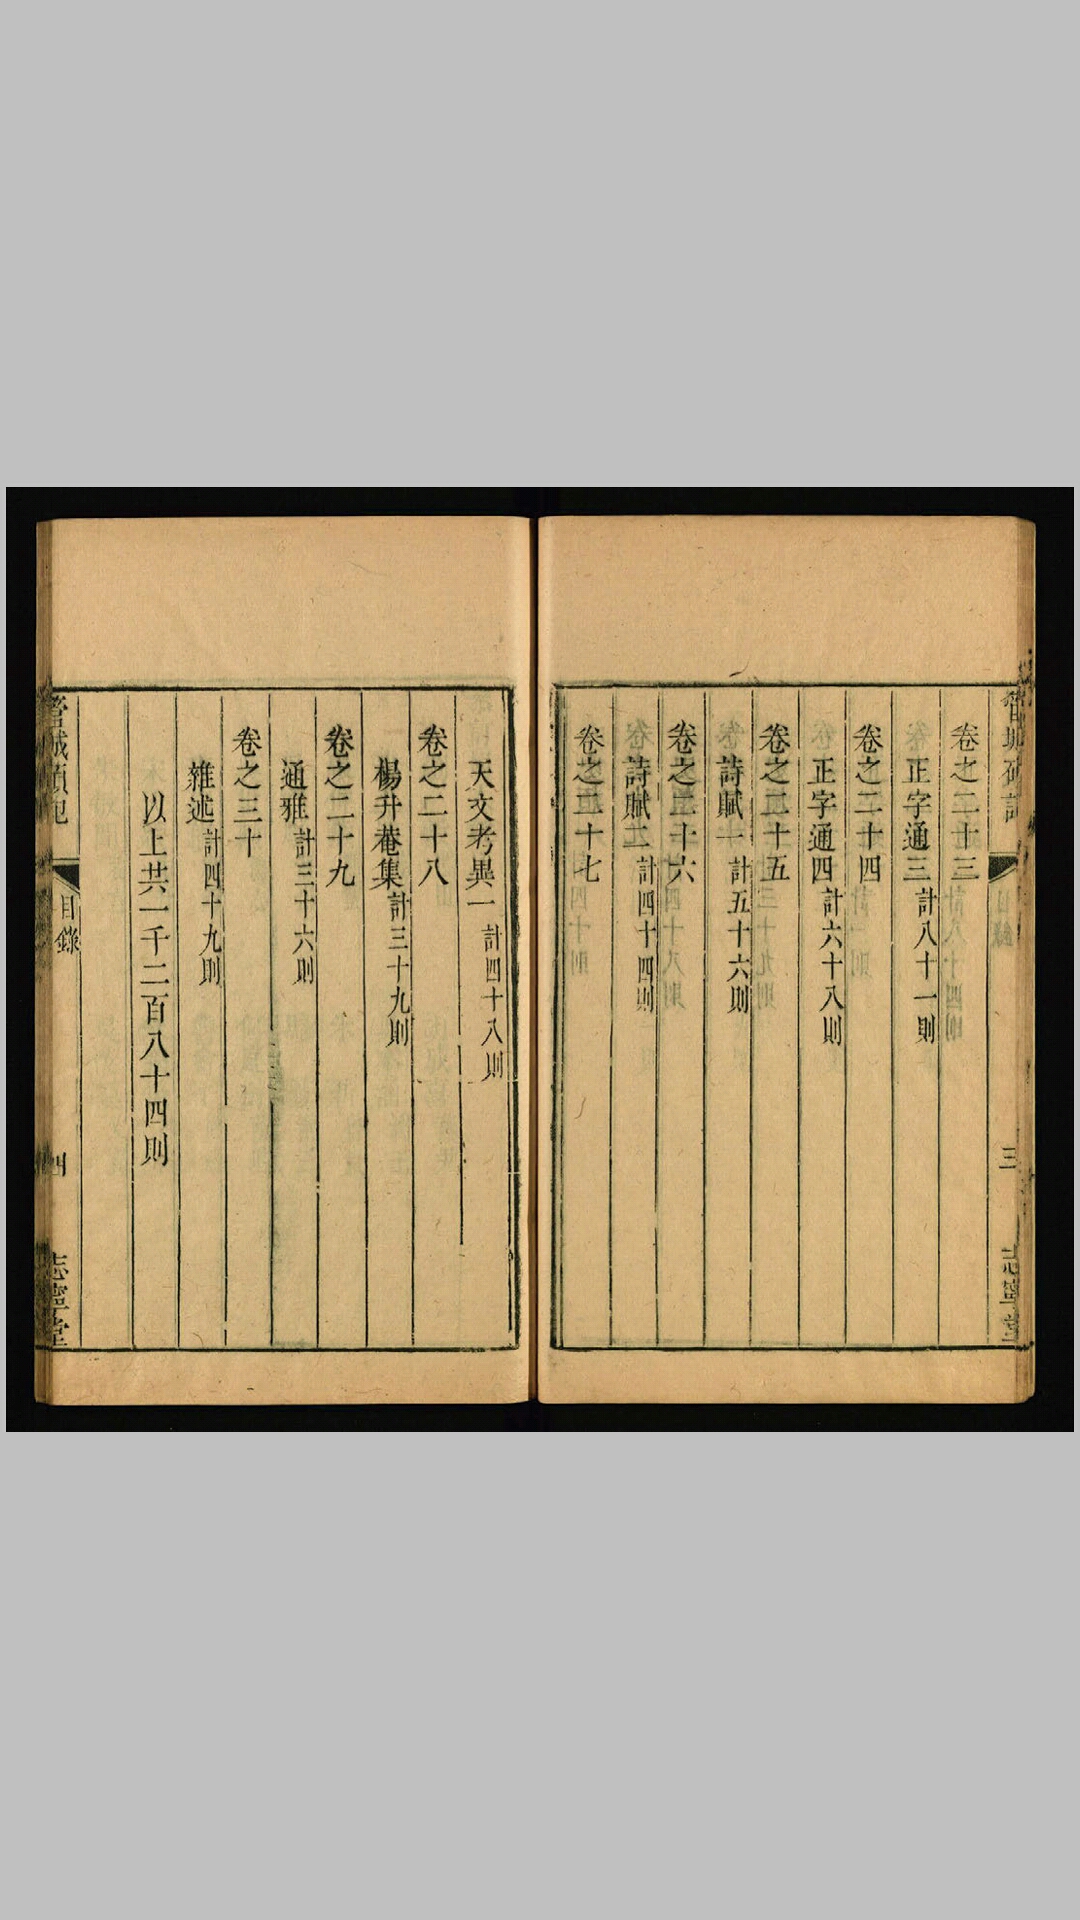 管城碩記 三 志寧堂
卷之二十三
正字通三 計八十一則
卷之二十四
正字通四 計六十八則
卷之二十五
詩賦一 計五十六則
卷之二十六
詩賦二 計四十四則
卷之二十七
天文考異一 計四十八則
卷之二十八
楊升菴集 計三十九則
卷之二十九
通雅 計三十六則
卷之三十
雜述 計四十九則
以上共一千二百八十四則
管城碩記 目錄 四 志寧堂